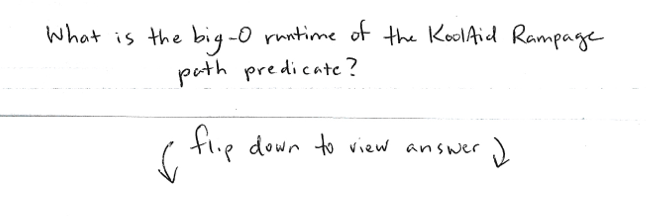 What is the big-O runtime of the KoolAid Rampage
path predicate?
flip down to view answer